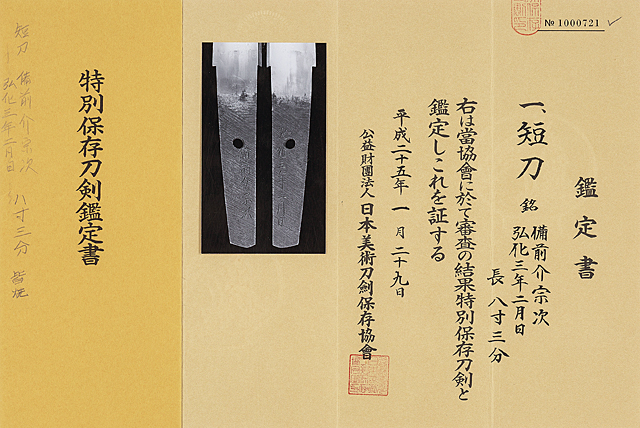 № 1000721
鑑定書
一、短刀 銘 備前介宗次
弘化三年二月日
長 八寸三分
右は當協會に於て審査の結果特別保存刀剣と
鑑定しこれを証する
平成二十五年 一月 二十九日
公益財團法人 日本美術刀剣保存協會
特別保存刀剣鑑定書
短刀 備前介宗次
弘化三年二月日 八寸三分 皆焼